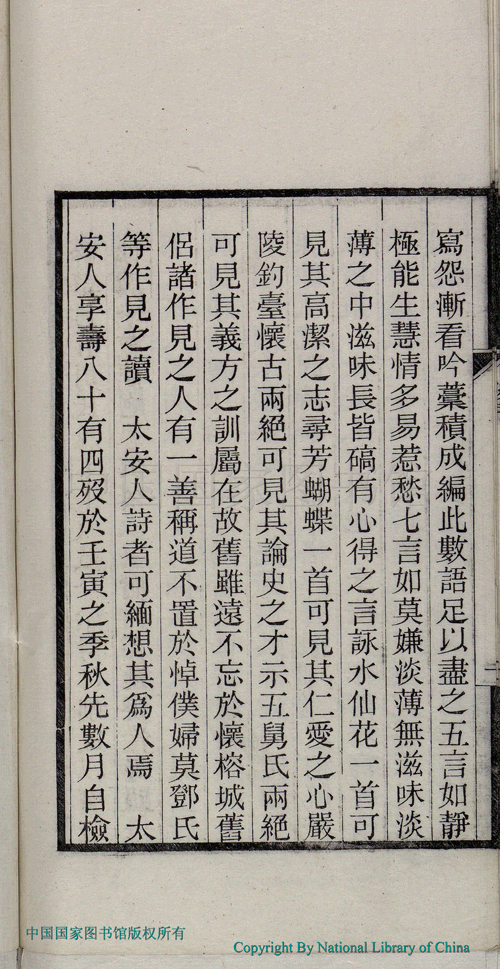 寫怨漸看吟藳積成編此數語足以盡之五言如靜
極能生慧情多易惹愁七言如莫嫌淡薄無滋味淡
薄之中滋味長皆碻有心得之言詠水仙花一首可
見其高潔之志尋芳蝴蝶一首可見其仁愛之心嚴
陵釣臺懷古兩絕可見其論史之才示五舅氏兩絕
可見其義方之訓屬在故舊雖遠不忘於懷榕城舊
侶諸作見之人有一善稱道不置於悼僕婦莫鄧氏
等作見之讀 太安人詩者可緬想其爲人焉 太
安人享壽八十有四歿於壬寅之季秋先數月自檢
中国国家图书馆版权所有
Copyright By National Library of China